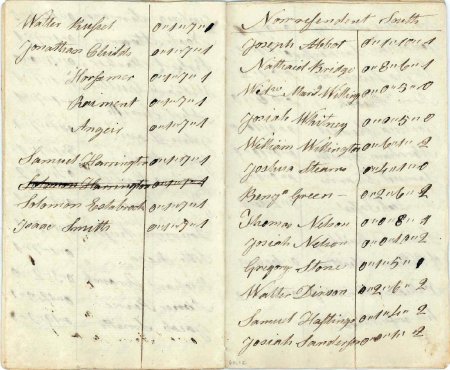 Walter Russel 0"1"7"1
Jonathan Childs 0"1"7"1
Horsomer 0"1"7"1
Raiment 0"1"7"1
Angeir 0"1"7"1
Samuel Harrington 0"1"7"1
Solomon Harrington 0"1"7"1
Solomon Estabrook 0"1"7"1
Isaac Smith 0"1"7"1
Nonresendent South
Joseph Abbot 0"1"10"1
Nathaniel Bridge 0"8"6"1
Mary 0"0"5"0
Josiah Whitney 0"0"5"0
William Wellington 0"6"1"2
Joshua Stearns 0"4"1"0
Benja Green 0"2"6"2
Thomas Nelson 0"0"8"1
Josiah Nelson 0"0"10"2
Gregory Stone 0"1"5"1
Walter 0"2"6"2
Samuel Hastings 0"1"4"2
Josiah Sanderson 0"0"1"2